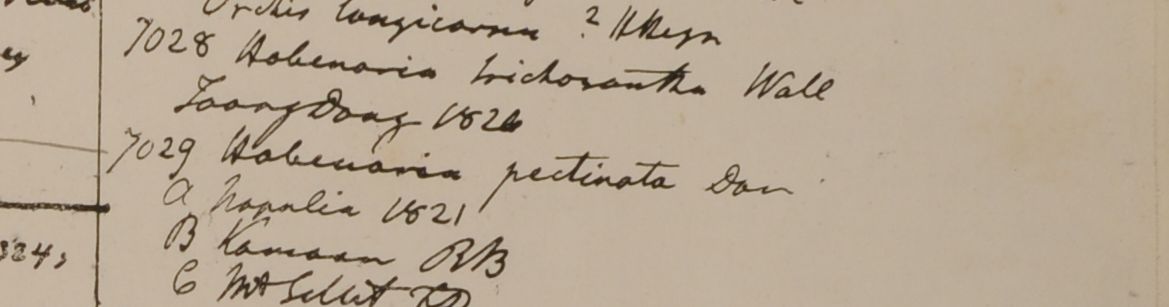 Orchis longicornu ? HHeyn
7028 Habenaria trichosantha Wall
Taong Dong 1826
7029 Habenaria pectinata Don
A Napalia 1821
B Kamaon RB
C Mt Sillet
324,